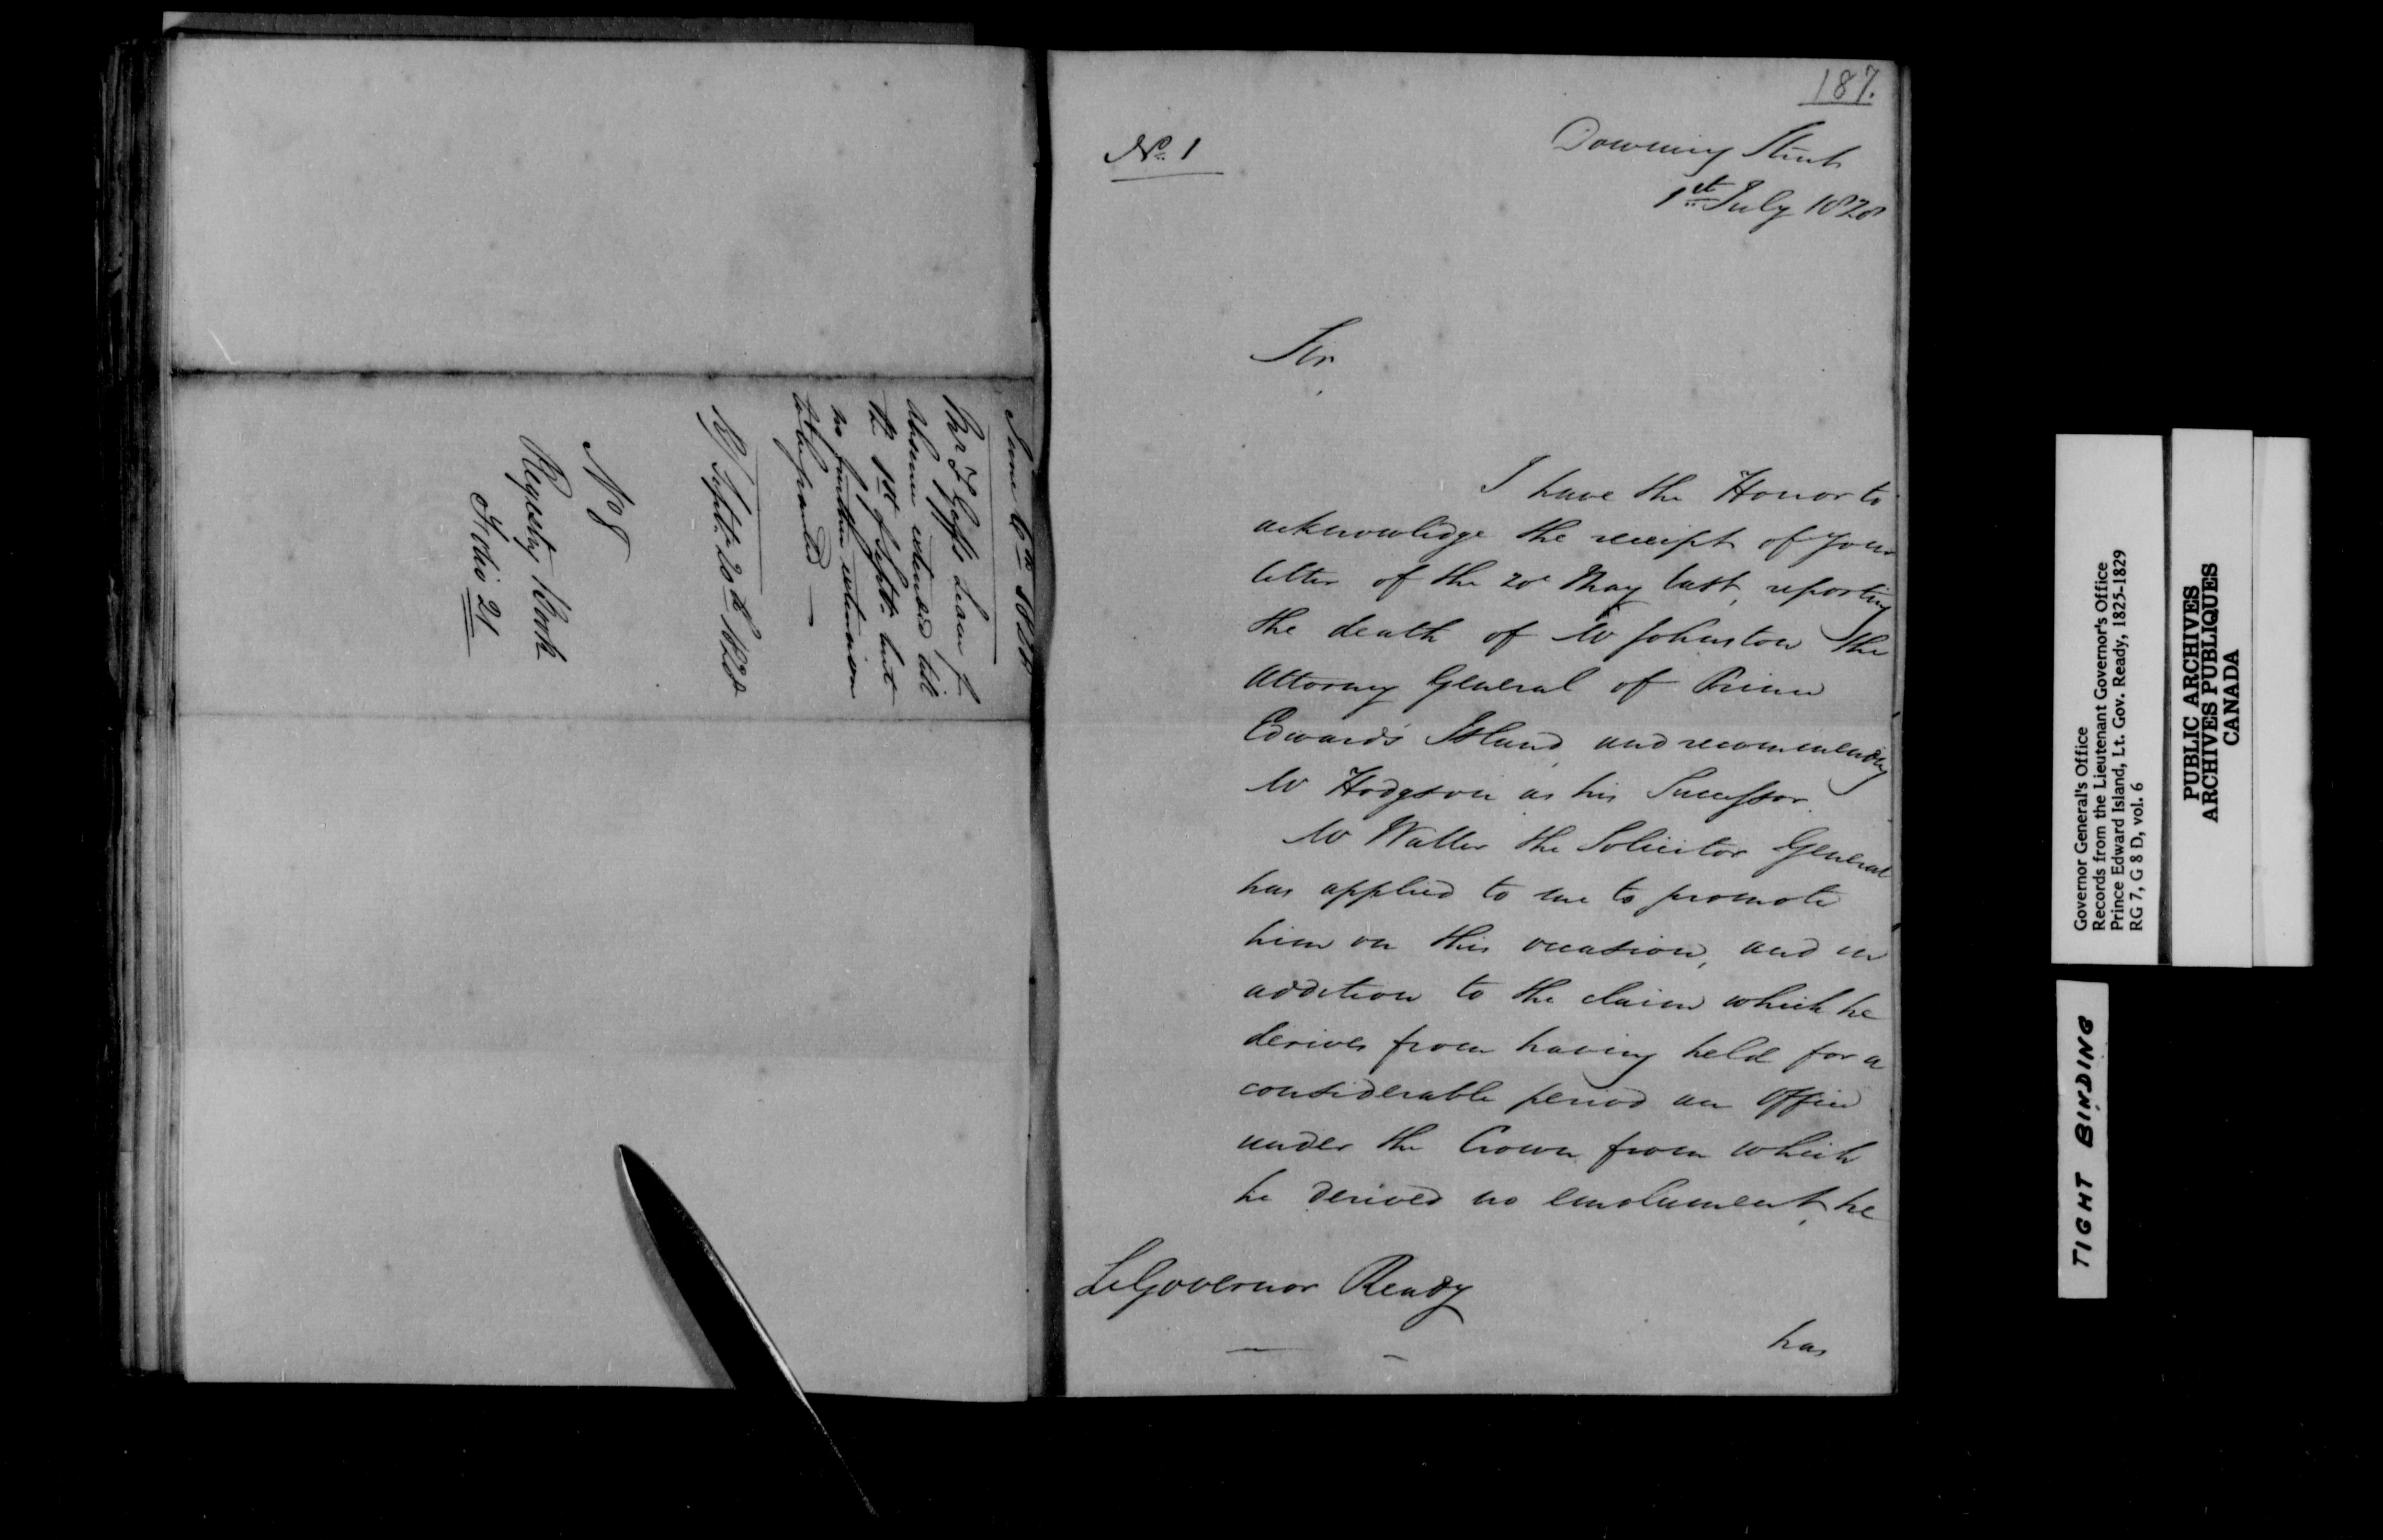 June 6th 1828
Mr F Goff's Leave of
absence extended till
the 1st of Septr. but
no further extension
to be granted —
R/ Septr. 20th 1828
No 8
Registry Book
Folio 21
187.
No. 1
Downing Street
1st July 1828
Sir
I have the Honor to
acknowledge the receipt of your
letter of the 20 May last, reporting
the death of Mr Johnston the
Attorney General of Prince
Edward's Island, and recommending
Mr Hodgson as his Successor.
Mr Waller the Solicitor General
has applied to me to promote
him on this occasion, and in
addition to the claim which he
derives from having held for a
considerable period an Office
under the Crown from which
he derived no emolument, he
Lt Governor Ready
has
Governor General's Office
Records from the Lieutenant Governor's Office
Prince Edward Island, Lt. Gov. Ready, 1825-1829
RG 7, G 8 D, vol. 6
PUBLIC ARCHIVES
ARCHIVES PUBLIQUES
CANADA
TIGHT BINDING